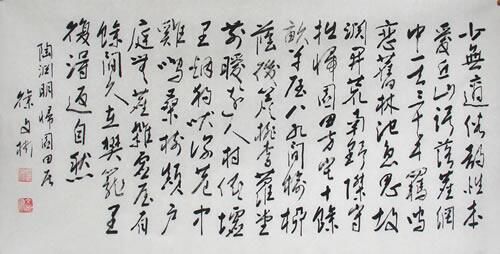 少無適俗韻性本
愛丘山誤落塵網
中一去三十年羈鳥
戀舊林池魚思故
淵開荒南野際守
拙歸園田方宅十餘
畝草屋八九間榆柳
蔭後簷桃李羅堂
前曖々遠人村依々墟
里煙狗吠深巷中
雞鳴桑樹顛户
庭無塵雜虛室有
餘閒久在樊籠里
復得返自然
陶淵明歸園田居